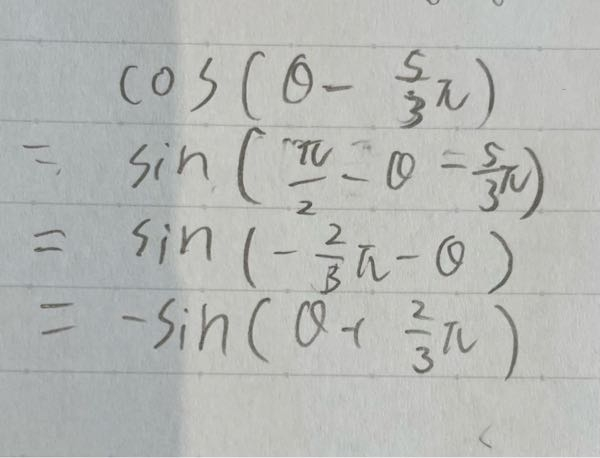 cos(θ - 5/3π)
= sin(π/2 - θ - 5/3π)
= sin(-2/3π - θ)
= -sin(θ + 2/3π)